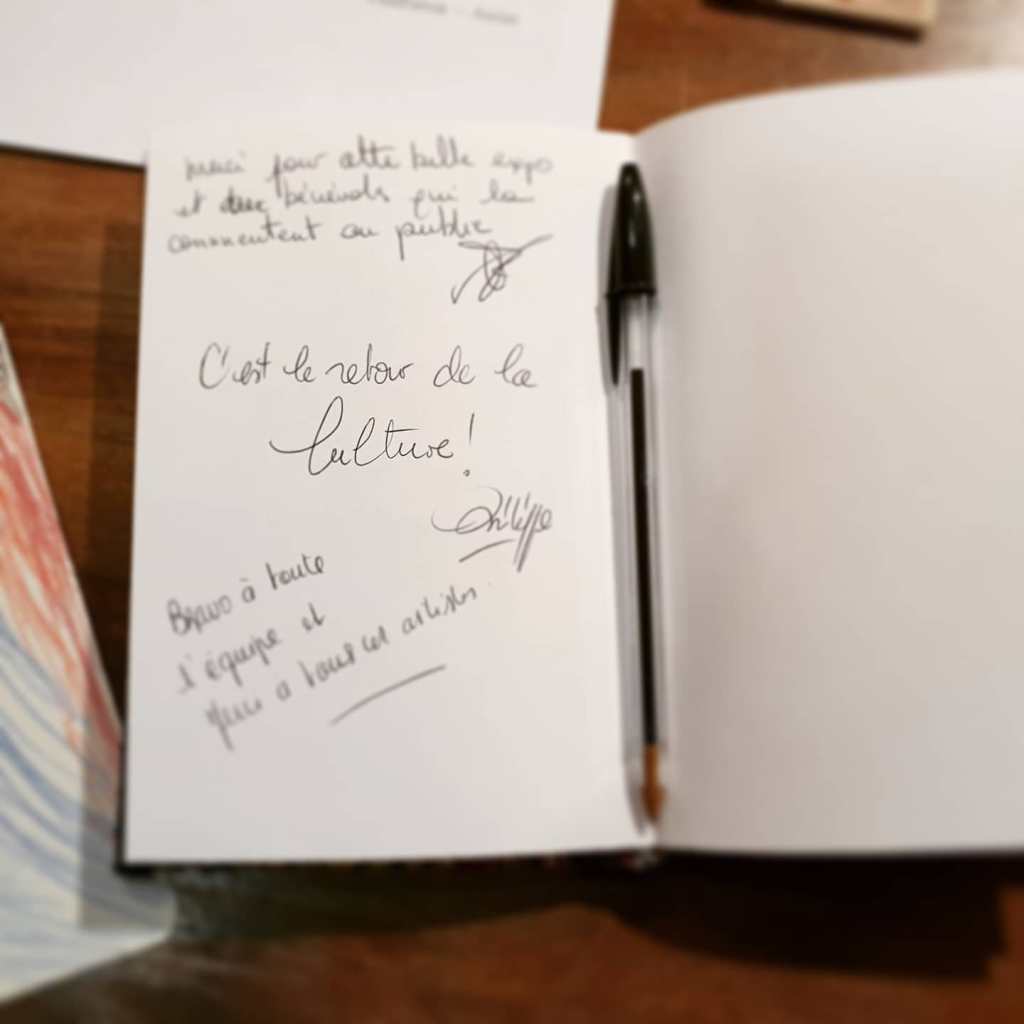 merci pour cette belle expo
et aux bénévols qui la
commentent au public
C'est le retour de la
Culture !
Philippe
Bravo à toute
l'équipe et
Merci a tous ces artistes.